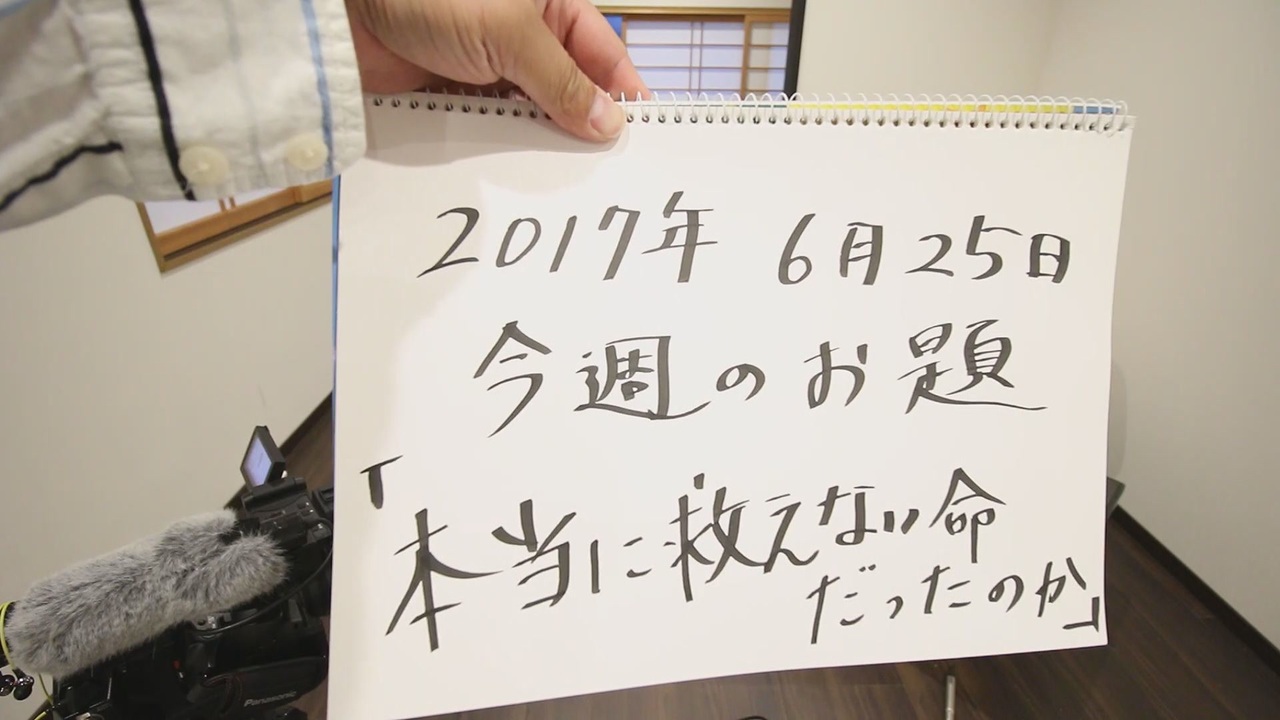 2017年 6月25日
今週のお題
「本当に救えない命
だったのか」
Panasonic